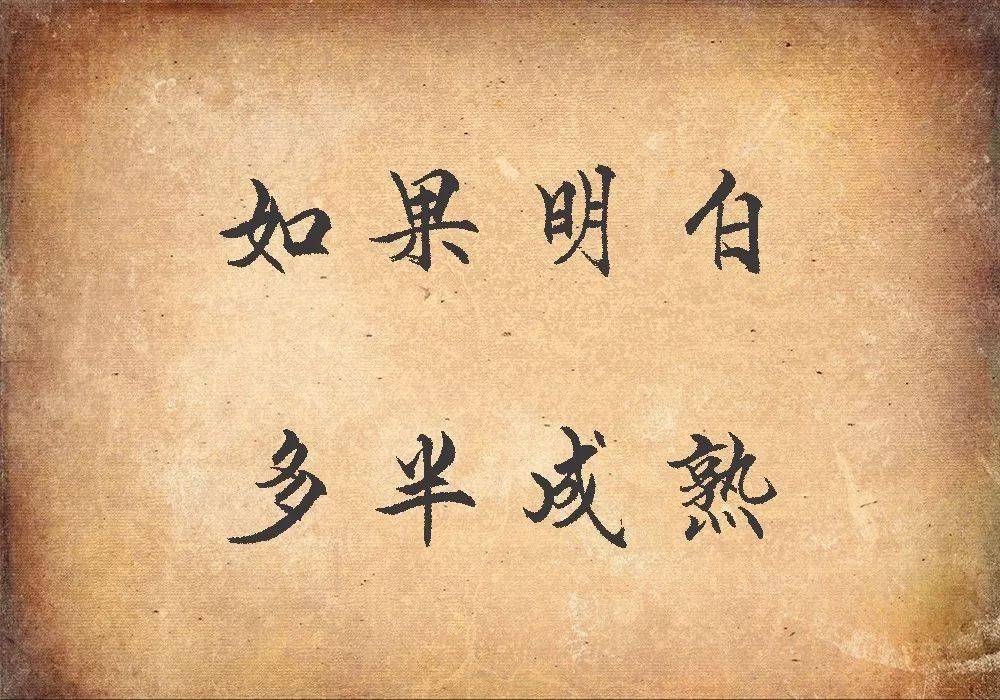 如果明白
多半成熟